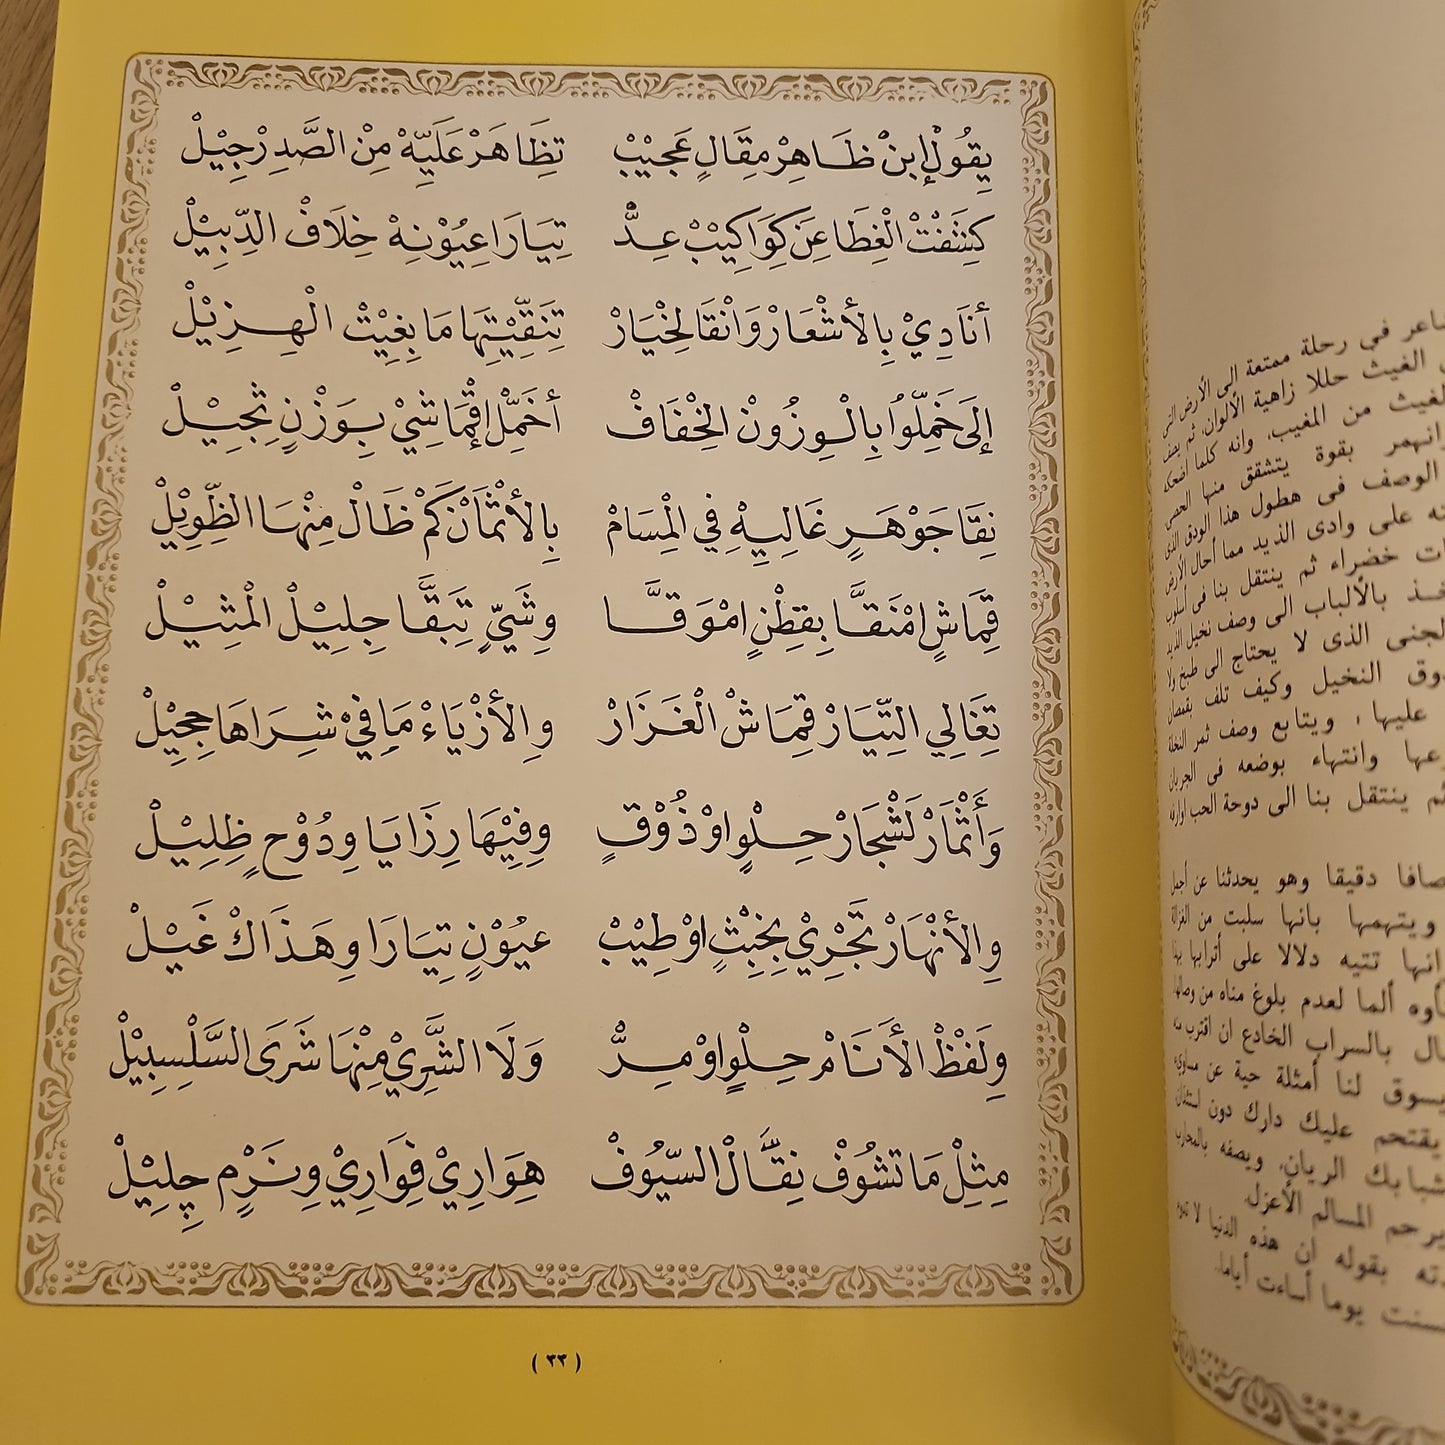 يِقُولْ إبنْ ظَاهِرْ مِقَالٍ عَجِيْبْ تِظَاهَرْ عَلَيِّهْ مِنْ الصَّدِرْ جِيْلْ
كِشَفْتْ الْغِطَا عَنَ كِوَاكِيْبْ عِدٍّ تِيَارَا عِيُوْنِهْ خِلَافْ الدِّبِيْلْ
أنَادِيْ بِالأشْعَارْ وَانْقَا لِخْيَارْ تِنَقِّيْتِهَا مَا بِغِيْتْ الْهِزِيْلْ
إلَى حَمِّلُوا بِالْوِزُوْنْ الِخْفَافْ أحَمِّلْ إقْمَاشِيْ بِوَزْنٍ ثِجِيْلْ
نِقَا جَوْهَرٍ غَالِيِهْ فِي الْمِسَامْ بِالأثْمَانْ كَمْ ظَالْ مِنْهَا الظِّوِيْلْ
قِمَاشٍ امْنَقَّا بِقِطْنٍ امْوَقَّا وِشَيٍّ تِبَقَّا جِلِيْلْ الْمْثِيْلْ
تِغَالِي التِّيَارْ قِمَاشْ الْغَزَارْ والأزْيَاءْ مَا فِيْ شِرَاهَا حِجِيْلْ
وَأثْمَارْ لَشْجَارْ حِلْوٍ اوْ ذُوْقٍ وفِيْهَا رِزَايَا وِدُوْحٍ ظِلِيْلْ
والأنْهَارْ تَجْرِيْ بِخِبْثٍ اوْ طِيْبْ عيُوْنٍ تِيَارَا وِهَذَاكْ غَيْلْ
وِلَفْظْ الأَنَامْ حِلْوٍ اوْ مِرّْ وَلَا الشَّرِيْ مِنْهَا شَرَى السَّلْسِبِيْلْ
مِثِلْ مَا تشُوْفْ نِقَّالْ السّيُوْفْ هِوَارِيْ فِوَارِيْ وِنَرْمٍ چِلِيْلْ
( ٣٣ )
اعر في رحلة ممتعة الى الأرض التى
الغيث حللا زاهية الألوان، ثم يصف
لغيث من المغيب، وانه كلما اضحكه
انهمر بقوة يتشقق منها الحصى
الوصف فى هطول هذا الودق الذى
ته على وادى الذيد مما أحال الأرض
ات خضراء ثم ينتقل بنا فى أسلوب
خذ بالألباب الى وصف نخيل الذيد
لجنى الذى لا يحتاج الى طبخ ولا
وق النخيل وكيف تلف بقمصان
عليها، ويتابع وصف ثمر النخلة
عها وانتهاء بوضعه فى الجريان
ثم ينتقل بنا الى دوحة الحب الوارفة
صافا دقيقا وهو يحدثنا عن أجمل
ويتهمها بانها سلبت من الغزالة
انها تتيه دلالا على أترابها بهذا
أوه ألما لعدم بلوغ مناه من وصالها
ال بالسراب الخادع ان اقترب منه
يسوق لنا أمثلة حية عن مساوىء
يقتحم عليك دارك دون استئذان
شبابك الريان، ويصفه بالمحارب
يرحم المسالم الأعزل.
ته بقوله ان هذه الدنيا لا تدوم
سنت يوما أساءت أياما.